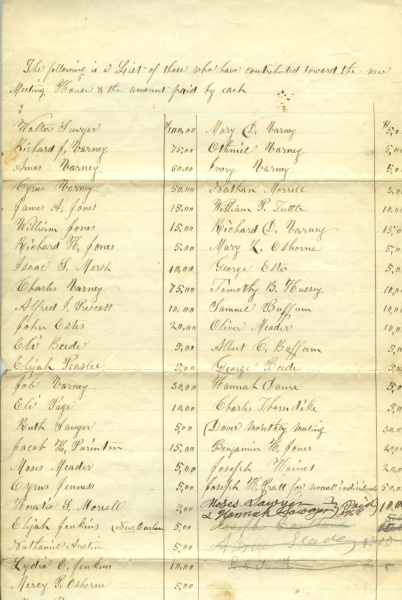 The following is a List of those who have contributed toward the new
Meeting House & the amount paid by each
Walter Sawyer $100,00 Mary D. Varney $5,0
Richard J. Varney 75,00 Othniel Varney 5,0
Amos Varney 50,00 Ivory Varney 5,0
Cyrus Varney 50,00 Nathan Morrell 5,0
James A. Jones 15,00 William P. Tuttle 10,0
William Jones 15,00 Richard D. Varney 15,0
Richard H. Jones 5,00 Mary K. Osborne 5,0
Isaac S. Marsh 10,00 George Estes 5,0
Charles Varney 75,00 Timothy B. Hussey 10,0
Alfred J. Prescott 10,00 Samuel Buffum 10,0
John Estes 20,00 Oliver Meader 10,0
Eli Beede 5,00 Albert C. Buffum 5,0
Elijah Peaslee 5,00 George Beede 5,0
Job Varney 30,00 Hannah Dame 5,0
Eli Page 10,00 Charles Thorndike 5,0
Ruth Sawyer 5,00 (Dover Monthly Meeting 30,0
Jacob H. Purinton 15,00 Benjamin H. Jones 20,0
Moses Meader 5,00 Joseph Haines 20,0
Cyrus Jenness 5,00 Joseph H. Pratt for several individuals 50,0
Horatio S. Morrell 2,00 Moses Sawyer Paid
Elijah Jenkins (New Durham 5,00 & Hannah Sawyer 10,0
Nathaniel Austin 5,00 Meader
Lydia C. Jenkins 10,00
Mercy P. Osborne 5,00